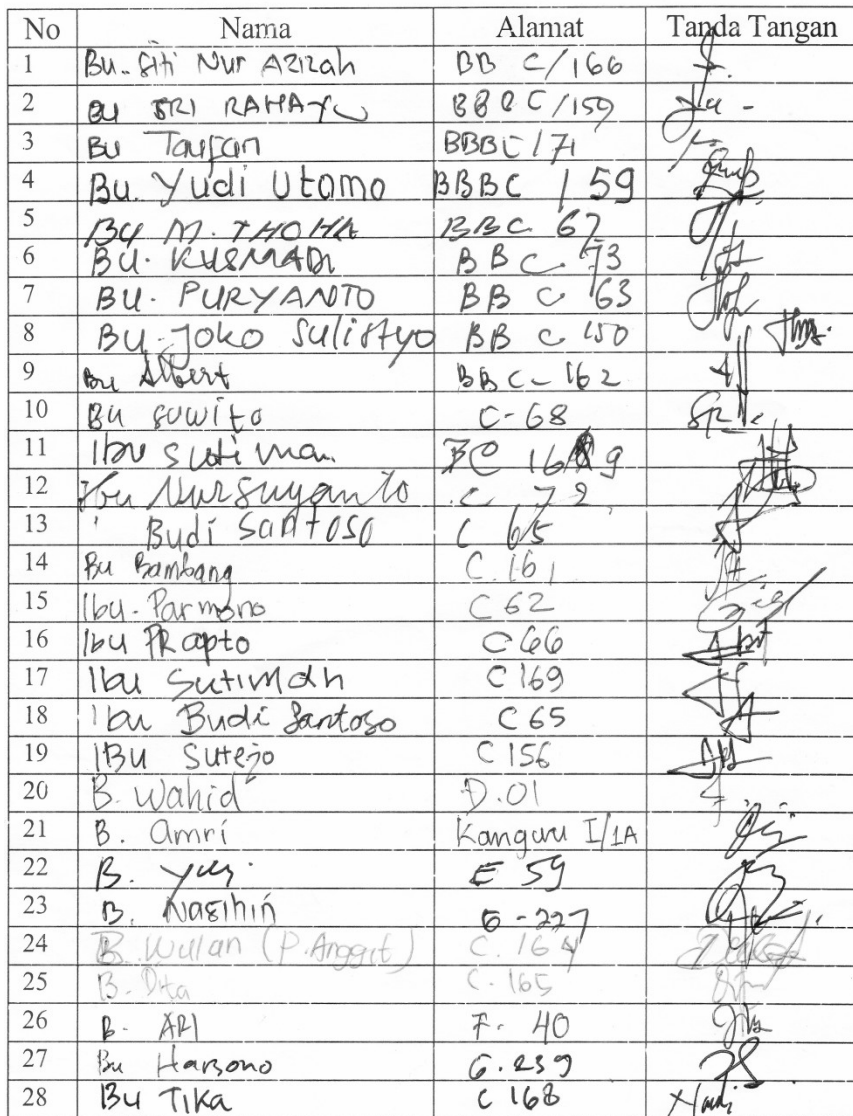 No Nama Alamat Tanda Tangan
1 Bu. Siti Nur Azizah BB C/166
2 BU SRI RAHAYU BBBC/159
3 Bu Taufan BBBC/71
4 Bu. Yudi Utomo BBBC /59
5 BU M. THOHA BBC 67
6 BU. KUSMADI BBC 73
7 BU. PURYANTO BB C 63
8 BU. Joko Sulistyo BB C 150
9 Bu Albert BBC-162
10 BU suwito C-68
11 Ibu Sutiman
12 Ibu Nursuyanto C 72
13 Budi Santoso C 65
14 Bu Bambang C. 161
15 Ibu. Parmono C 62
16 Ibu PRapto C 66
17 Ibu Sutimah C 169
18 Ibu Budi Santoso C 65
19 IBu Sutejo C 156
20 B. Wahid D.01
21 B. Amri Kanguru I/1A
22 B. Yuli E 59
23 B. Nasihin 6-227
24 B. Wulan (P. Anggit) C. 164
25 B. Dita C. 165
26 B. ARI F. 40
27 Bu Harsono G.239
28 Bu Tika C 168